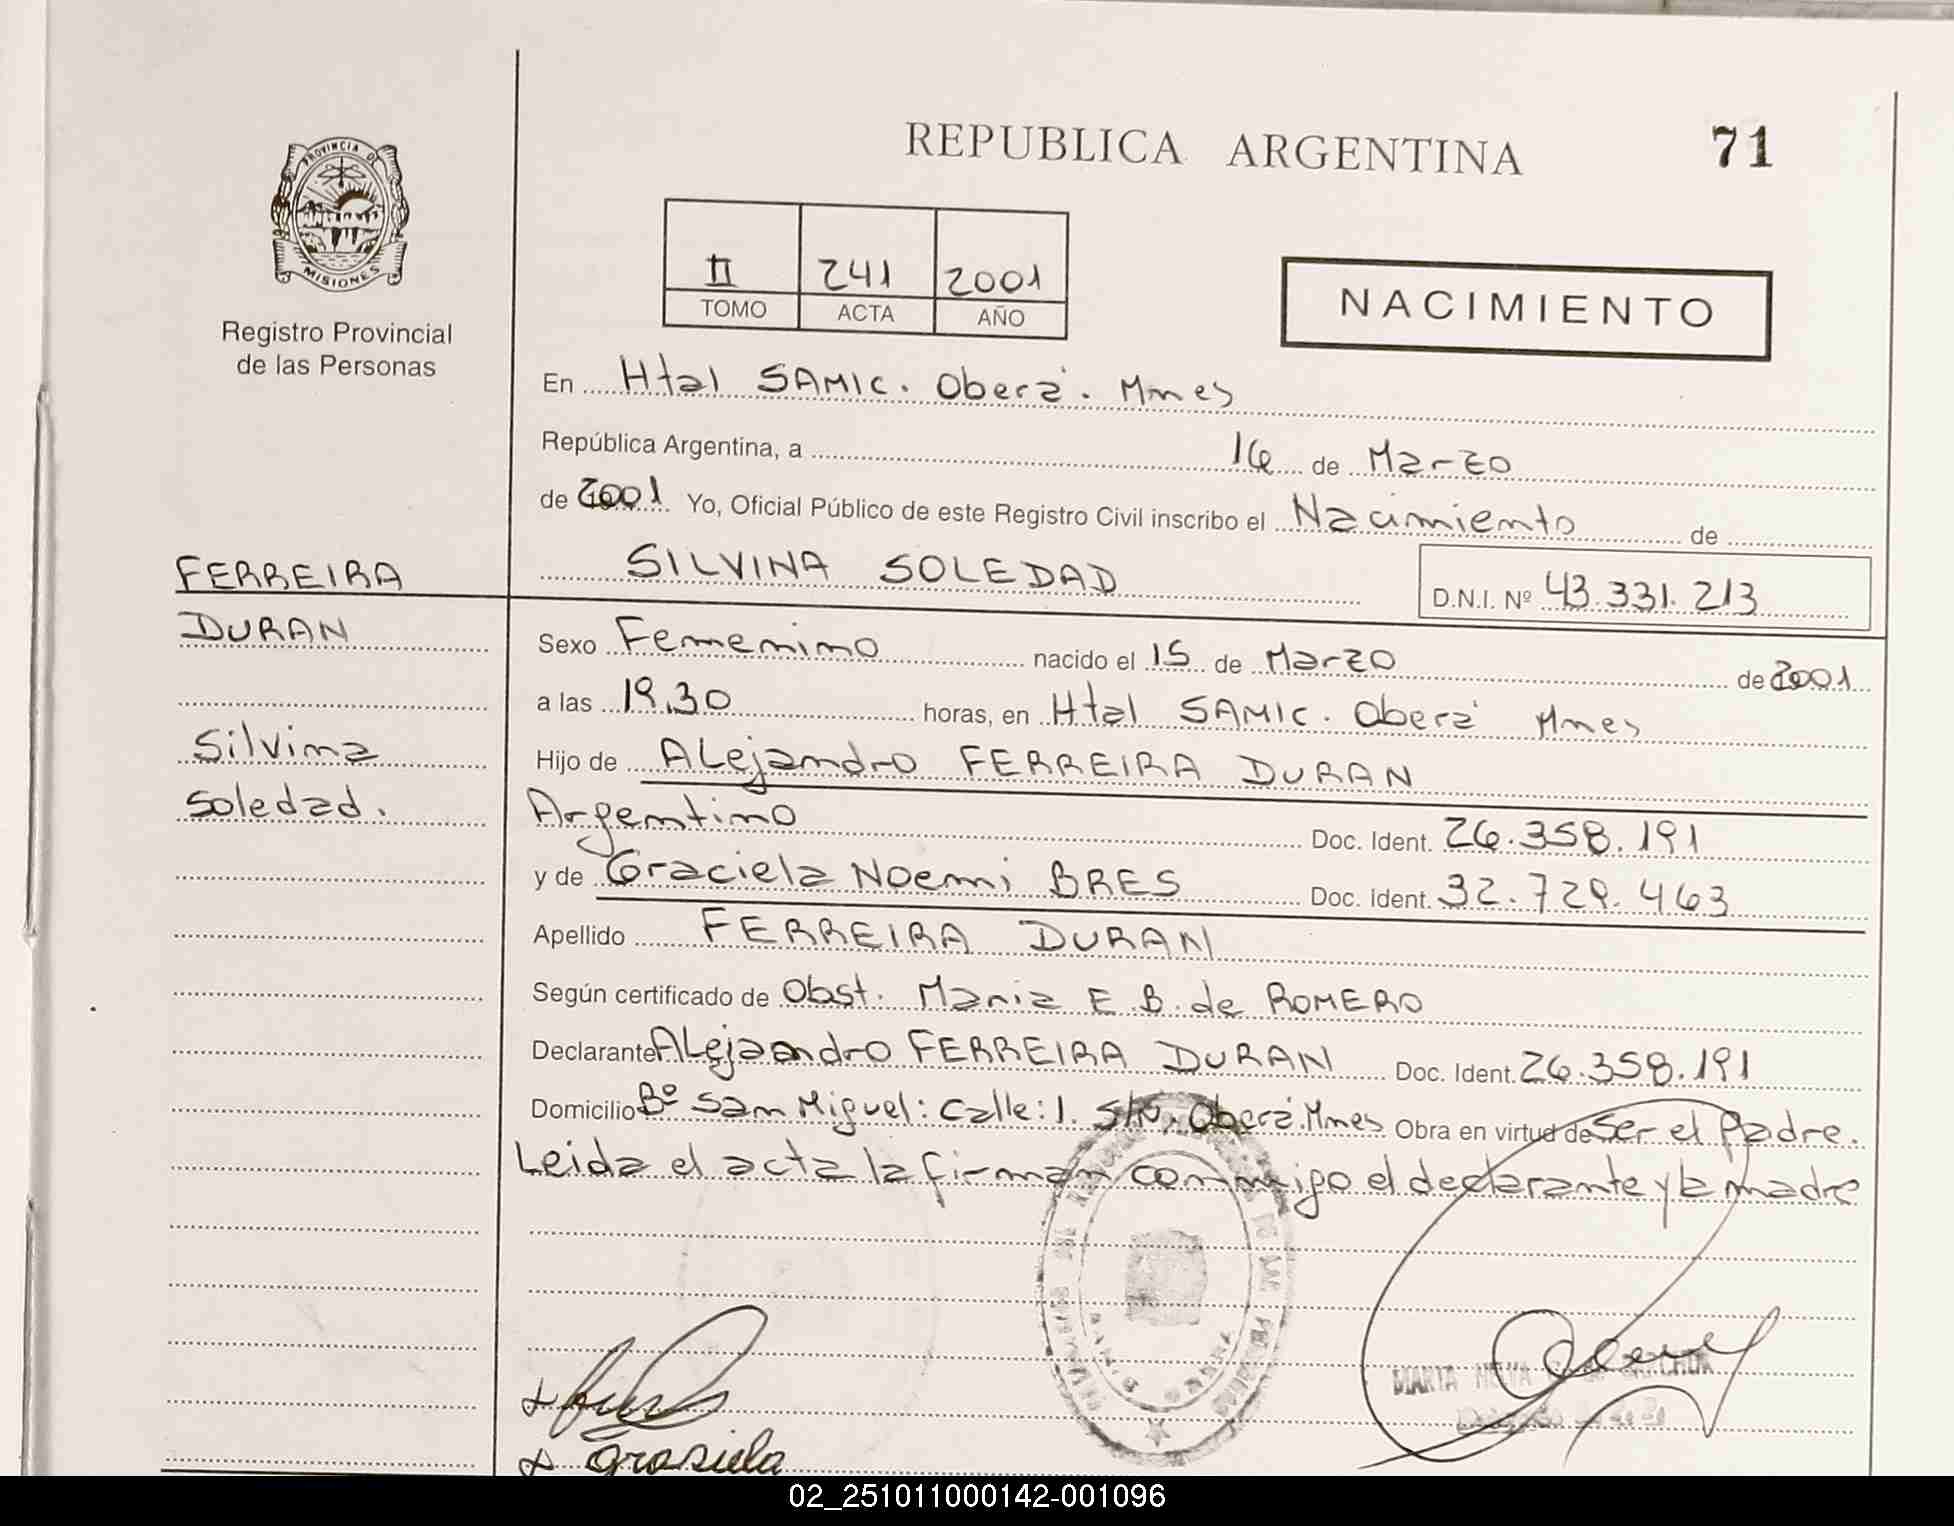 REPUBLICA ARGENTINA
71
PROVINCIA DE
MISIONES
Registro Provincial
de las Personas
II 241 2001
TOMO ACTA AÑO
NACIMIENTO
En Htal SAMIC. Oberá. Mnes
República Argentina, a 16 de Marzo
de 2001 Yo, Oficial Público de este Registro Civil inscribo el Nacimiento de
SILVINA SOLEDAD
D.N.I. Nº 43.331.213
FERREIRA
DURAN
Silvina
Soledad.
Sexo Femenino nacido el 15 de Marzo de 2001
a las 19,30 horas, en Htal SAMIC. Oberá Mnes
Hijo de Alejandro FERREIRA DURAN
Argentino Doc. Ident. 26.358.191
y de Graciela Noemi BRES Doc. Ident. 32.729.463
Apellido FERREIRA DURAN
Según certificado de Obst. Maria E.B. de ROMERO
Declarante Alejandro FERREIRA DURAN Doc. Ident. 26.358.191
Domicilio Bº San Miguel: Calle: 1. S/N, Oberá. Mnes Obra en virtud de Ser el Padre.
Leida el acta la firman conmigo el declarante y la madre
MARTA
Grasiela
02_251011000142-001096